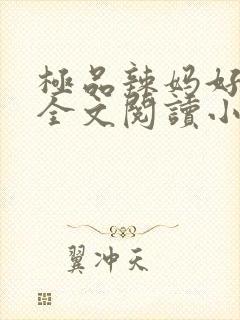 極品辣妈好
全文閱讀小
翼冲天